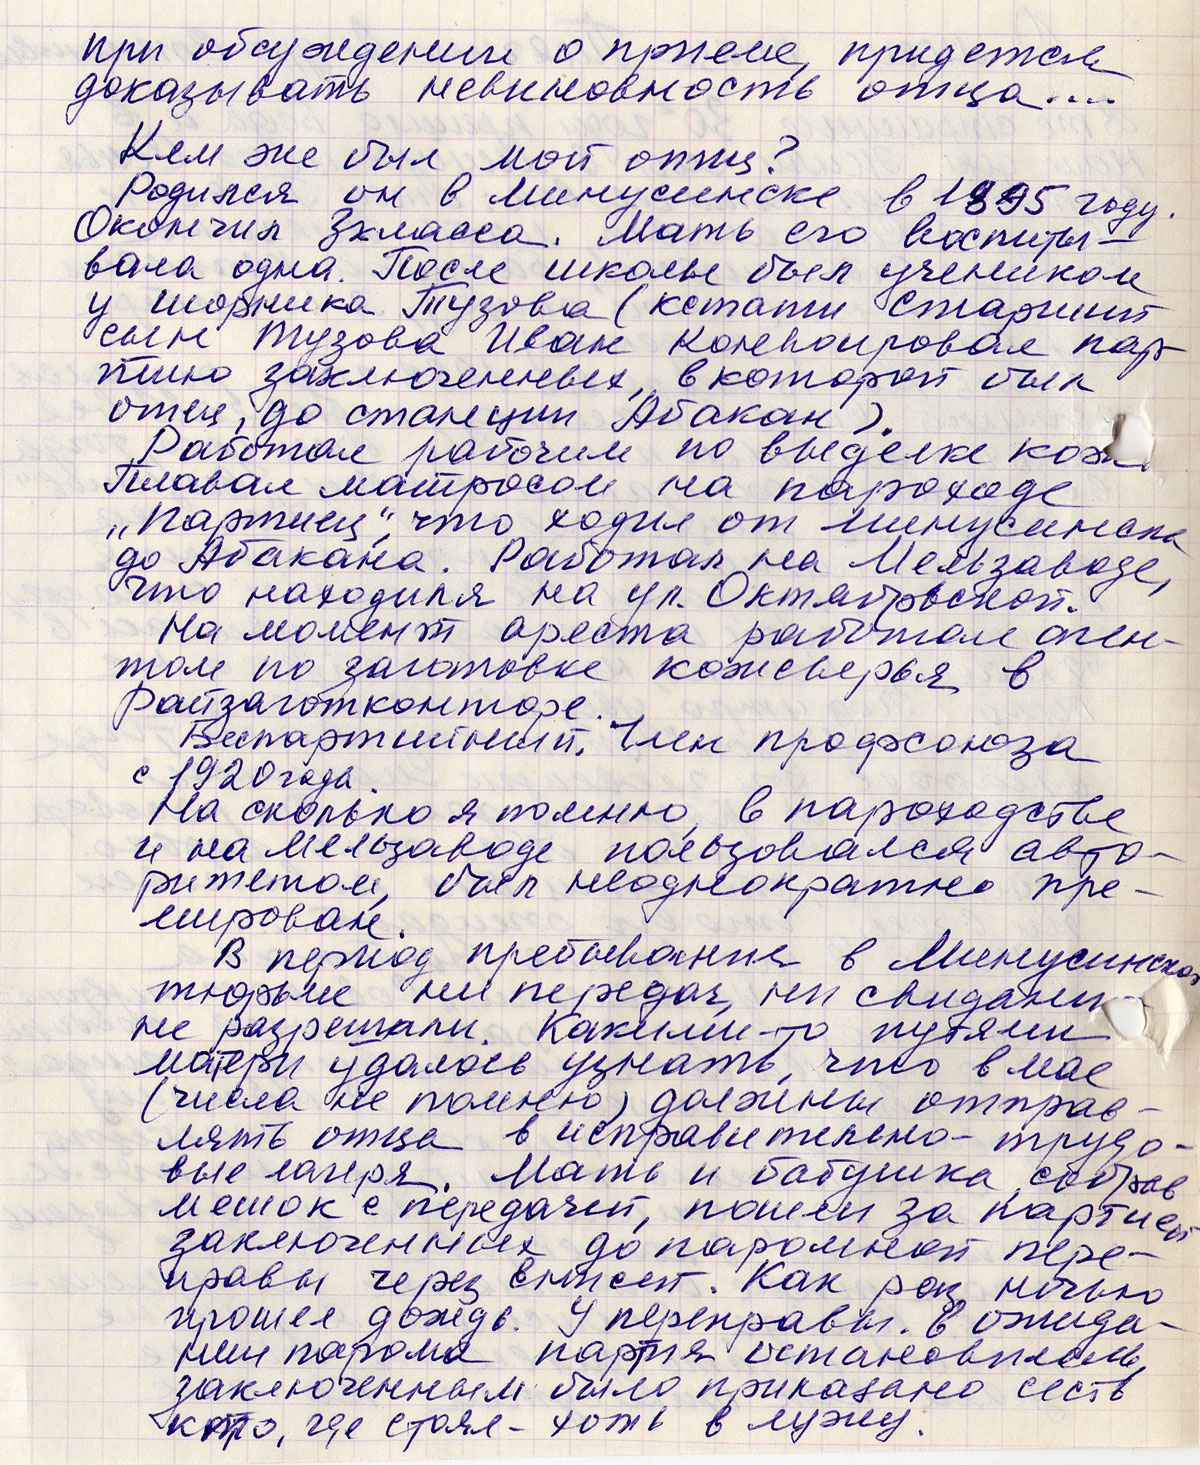 при обсуждении о приеме, придется
доказывать невиновность отца....
Кем же был мой отец?
Родился он в Минусинске в 1895 году.
Окончил 3 класса. Мать его воспиты-
вала одна. После школы был учеником
у шорника Тузова (кстати старший
сын Тузова Иван конвоировал пар-
тию заключенных, в которой был
отец, до станции Абакан).
Работал рабочим по выделке кож.
Плавал матросом на пароходе
„Партиец", что ходил от Минусинска
до Абакана. Работал на Мельзаводе,
что находился на ул. Октябрьской.
На момент ареста работал аген-
том по заготовке кожсырья в
Райзаготконторе.
Беспартийный. Член профсоюза
с 1920 года.
На сколько я помню, в пароходстве
и на Мельзаводе пользовался авто-
ритетом, был неоднократно пре-
мирован.
В период пребывания в Минусинской
тюрьме ни передач, ни свиданий
не разрешали. Какими-то путями
матери удалось узнать, что в мае
(числа не помню) должны отправ-
лять отца в исправительно-трудо-
вые лагеря. Мать и бабушка, собрав
мешок с передачей, пошли за партией
заключенных до паромной пере-
правы через Енисей. Как раз ночью
прошел дождь. У переправы в ожида-
нии парома партия остановилась,
заключенным было приказано сесть
кто, где стоял - хоть в лужу.